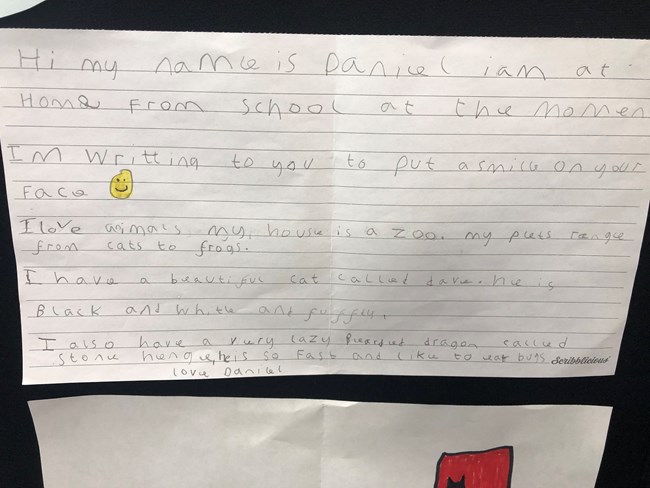 Hi my name is Daniel iam at
Home From school at the Momen
IM Writting to you to put a smile on your
Face
I love animals my house is a zoo. my pets range
from cats to frogs.
I have a beautiful cat called dave. he is
Black and white and fuffy.
I also have a very lazy Bearded dragon called
stone henge, he is so Fast and like to eat bugs. Scribblicious
love Daniel